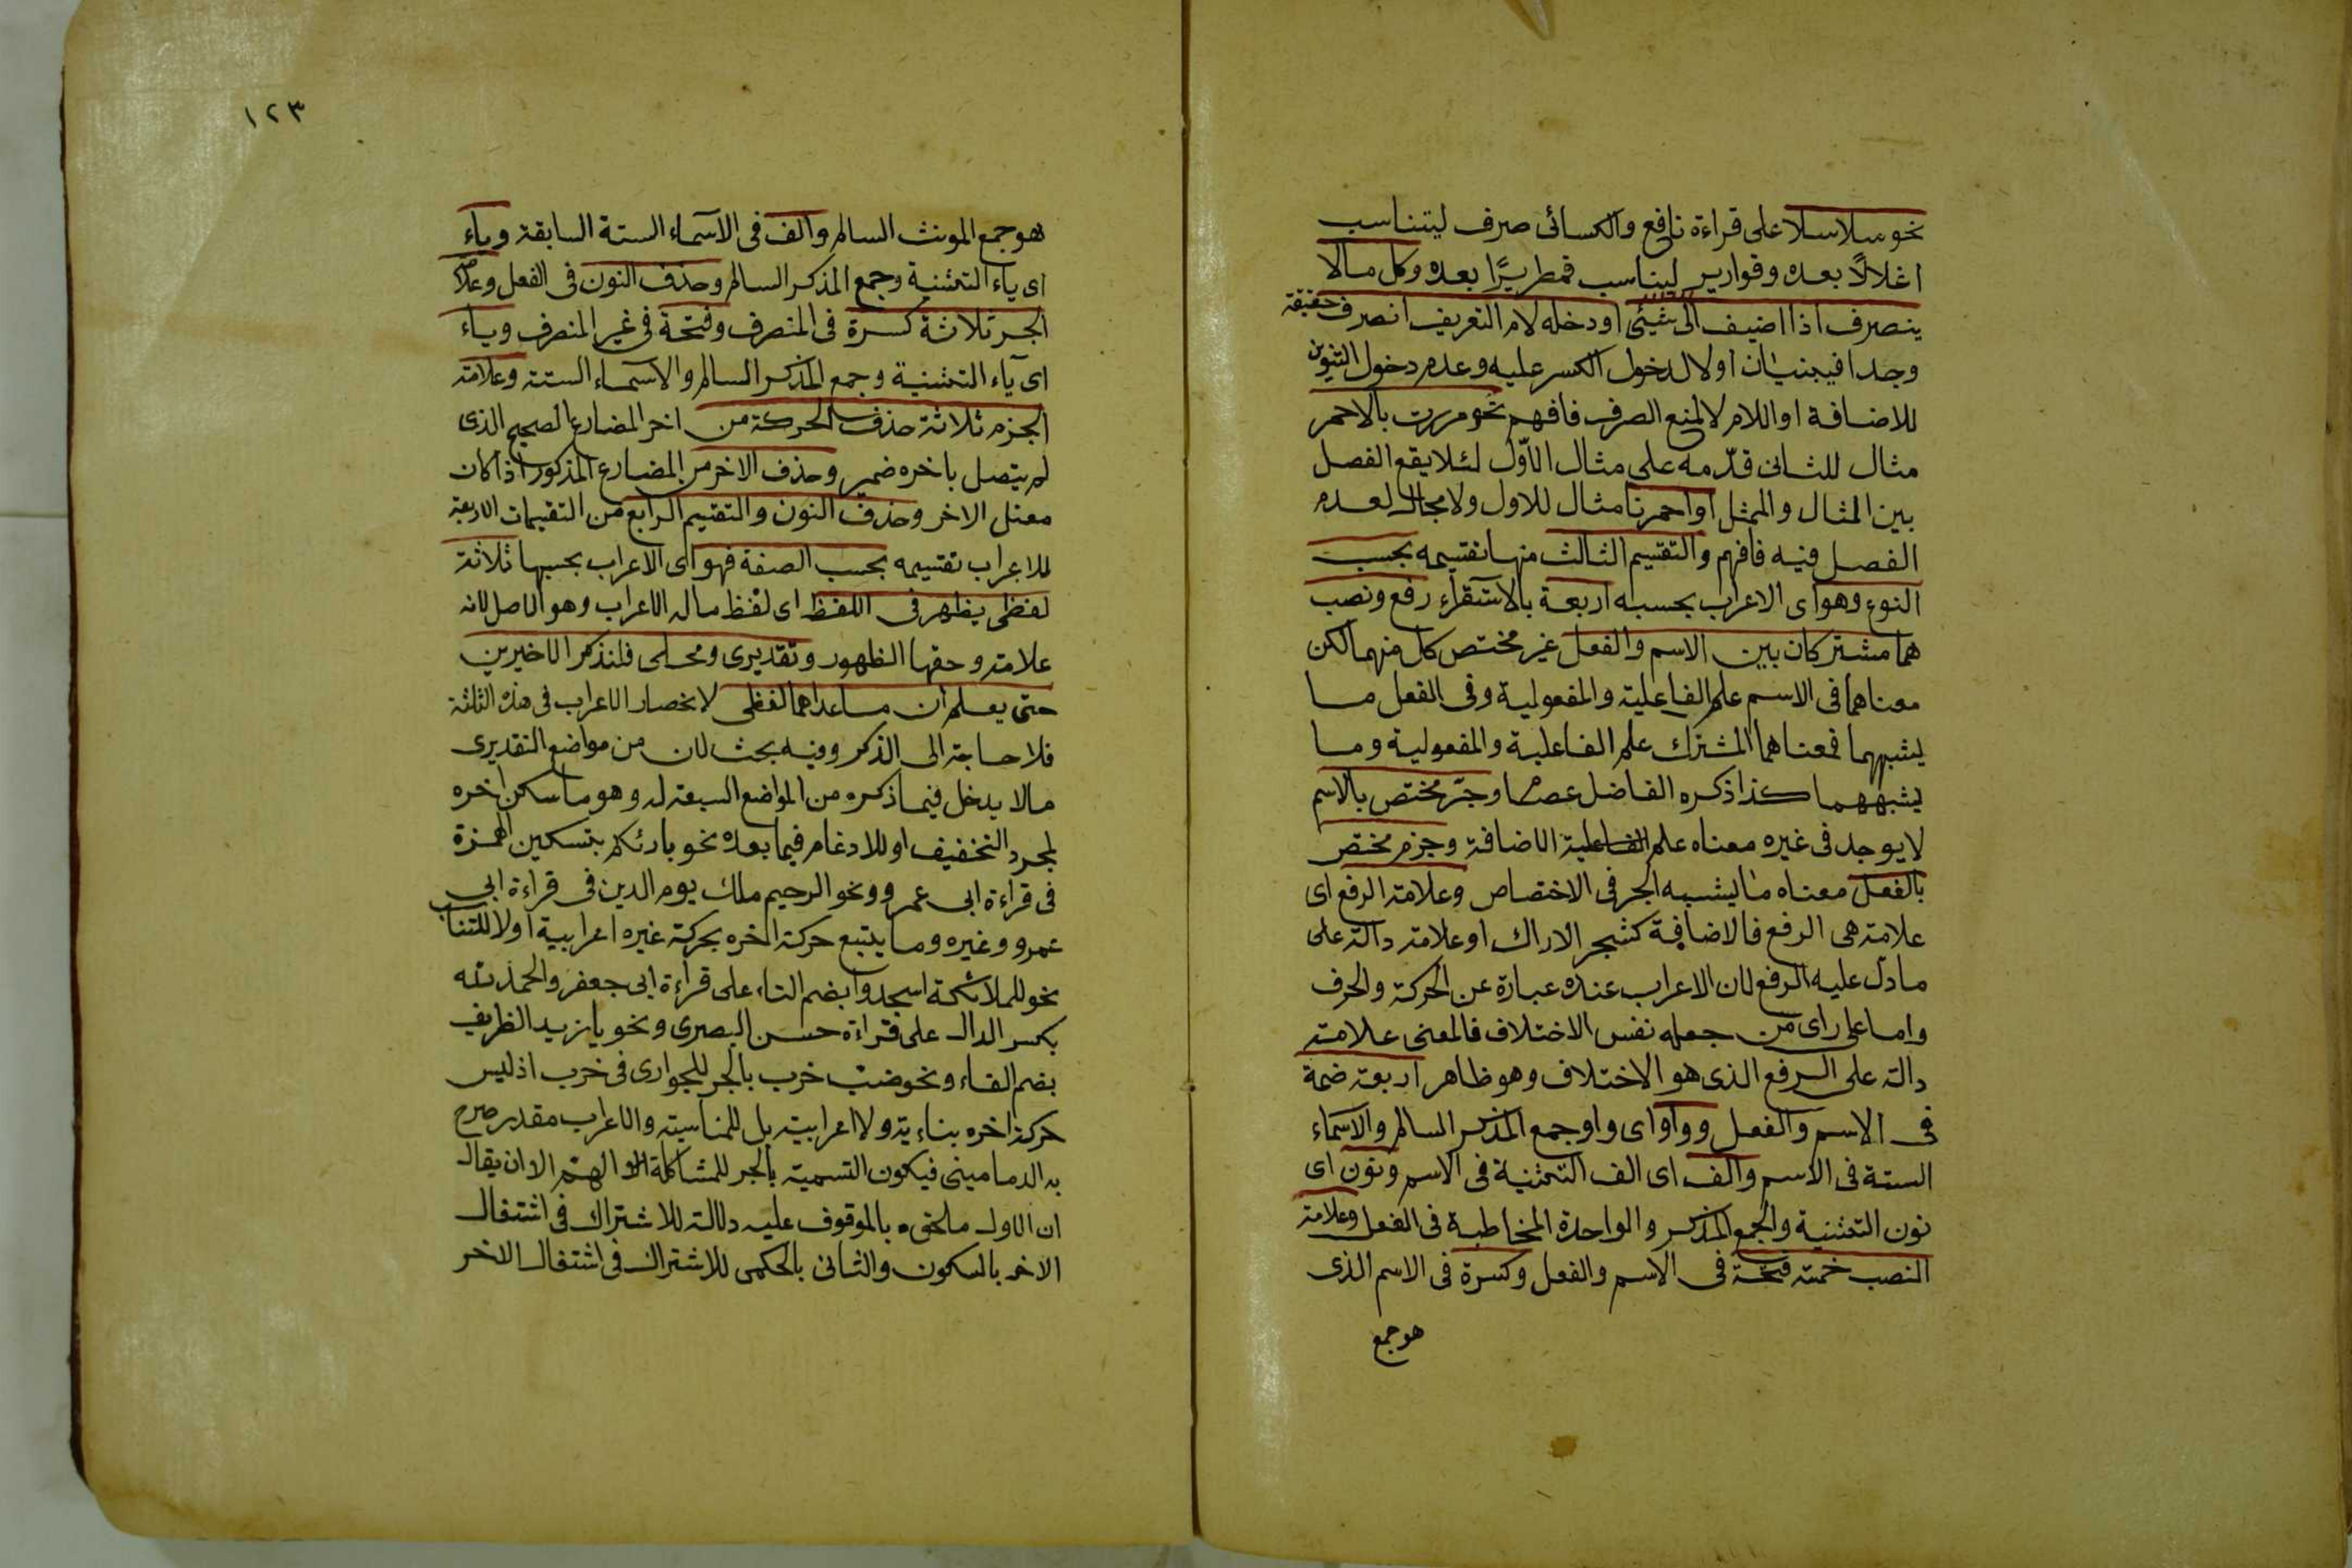 نحو سلاسلا على قراءة نافع والكسائى صرف ليتناسب
اغلالًا بعده وقوارير ليناسب قمطريرًا بعده وكل مالا
ينصرف اذا اضيف الى شيئ او دخله لام التعريف انصرف حقيقة
وجدا فيجئيان اولا لدخول الكسر عليه وعدم دخول التنوين
للاضافة او اللام لا لمنع الصرف فافهم نحو مررت بالاحمر
مثال للثانى قدّمه على مثال الاوّل لئلا يقع الفصل
بين المثال والممثل او احمرنا مثال للاول ولا مجال لعدم
الفصل فيه فافهم والتقسيم الثالث منها تقسيمه بحسب
النوع وهو اى الاعراب بحسبه اربعة بالاستقراء رفع ونصب
هما مشتركان بين الاسم والفعل غير مختص كل منهما لكن
معناهما فى الاسم علم الفاعلية والمفعولية وفى الفعل ما
يشبههما فمعناهما المشترك علم الفاعلية والمفعولية وما
يشبههما كذا ذكره الفاضل عصام وجرّ مختص بالاسم
لا يوجد فى غيره معناه علم الفاعلية الاضافة وجزم مختص
بالفعل معناه ما يشبه الجر فى الاختصاص وعلامة الرفع اى
علامة هى الرفع فالاضافة كشجر الاراك او علامة دالة على
ما دل عليه الرفع لان الاعراب عنده عبارة عن الحركة والحرف
واما على راى من جعله نفس الاختلاف فالمعنى علامة
دالة على الرفع الذى هو الاختلاف وهو ظاهر اربعة ضمة
فى الاسم والفعل وواو اى واو جمع المذكر السالم والاسماء
الستة فى الاسم والف اى الف التثنية فى الاسم ونون اى
نون التثنية والجمع المذكر والواحدة المخاطبة فى الفعل وعلامة
النصب خمسة فتحة فى الاسم والفعل وكسرة فى الاسم الذى
هو جمع
١٢٣
هو جمع المونث السالم والف فى الاسماء الستة السابقة وياء
اى ياء التثنية وجمع المذكر السالم وحذف النون فى الفعل وعلامة
الجر ثلاثة كسرة فى المنصرف وفتحة فى غير المنصرف وياء
اى ياء التثنية وجمع المذكر السالم والاسماء الستة وعلامة
الجزم ثلاثة حذف الحركة من اخر المضارع الصحيح الذى
لم يتصل باخره ضمير وحذف الاخر من المضارع المذكور اذا كان
معتل الاخر وحذف النون والتقسيم الرابع من التقسيمات الاربعة
للاعراب تقسيمه بحسب الصفة فهو اى الاعراب بحسبها ثلاثة
لفظى يظهر فى اللفظ اى لفظ ماله الاعراب وهو الاصل لانه
علامة وحقها الظهور وتقديرى ومحلى فلنذكر الاخيرين
حتى يعلم ان ما عداهما لفظى لانحصار الاعراب فى هذه الثلثة
فلا حاجة الى الذكر وفيه بحث لان من مواضع التقديرى
مالا يدخل فيما ذكره من المواضع السبعة له وهو ما سكن اخره
لمجرد التخفيف او للادغام فيما بعده نحو بارئكم بتسكين الهمزة
فى قراءة ابى عمرو ونحو الرحيم ملك يوم الدين فى قراءة ابى
عمرو وغيره وما يتبع حركة اخره بحركة غيره اعرابية اولا للتناسب
نحو للملائكة اسجدوا بضم التاء على قراءة ابى جعفر والحمد لله
بكسر الدال على قراءة حسن البصرى ونحو يا زيد الظريف
بضم الفاء ونحو ضب خرب بالجر للجوارى فى خرب اذ ليس
حركة اخره بناءية ولا اعرابية بل للمناسبة والاعراب مقدر صرح
به الدمامينى فيكون التسمية بالجر للمشاكلة اللهم الا ان يقال
ان الاول ملحق بالموقوف عليه دلالة للاشتراك فى اشتغال
الاخر بالسكون والثانى بالحكمى للاشتراك فى اشتغال الاخر